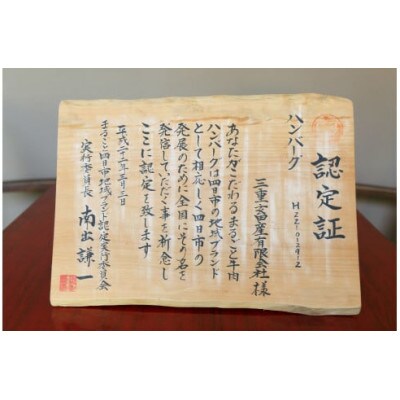 認定証
H22-0129-2
ハンバーグ
三重六畜産有限会社 様
あなたがこだわるまるごと牛肉
ハンバーグは四日市の地域ブランド
として相応しく四日市の
発展のために全国にその名を
発信していただく事を祈念し
ここに認定を致します
平成二十二年三月三日
まるごと四日市地域ブランド認定実行委員会
実行委員長 南出謙一